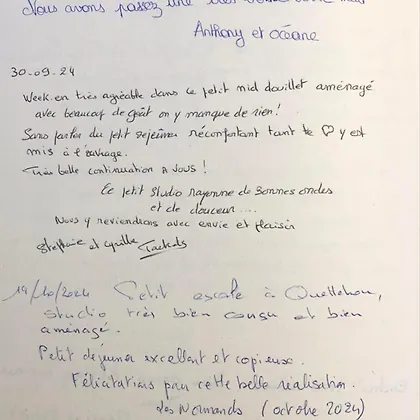 Nous avons passez une
Anthony et océane
30-09-24
Week-en très agréable dans ce petit nid douillet aménagé
avec beaucoup de goût on y manque de rien!
Sans parler du petit dejeûner réconfortant tant le ♡ y est
mis à l'ouvrage.
Très belle continuation à vous!
Ce petit studio rayonne de bonnes ondes
et de douceur....
Nous y reviendrons avec envie et plaisir
Stephanie et cyrille
19/10/2024 Petit escale à Quettehou,
studio très bien conçu et bien
aménagé.
Petit déjeuner excellent et copieux.
Félicitations pour cette belle réalisation.
Les Normands (octobre 2024)